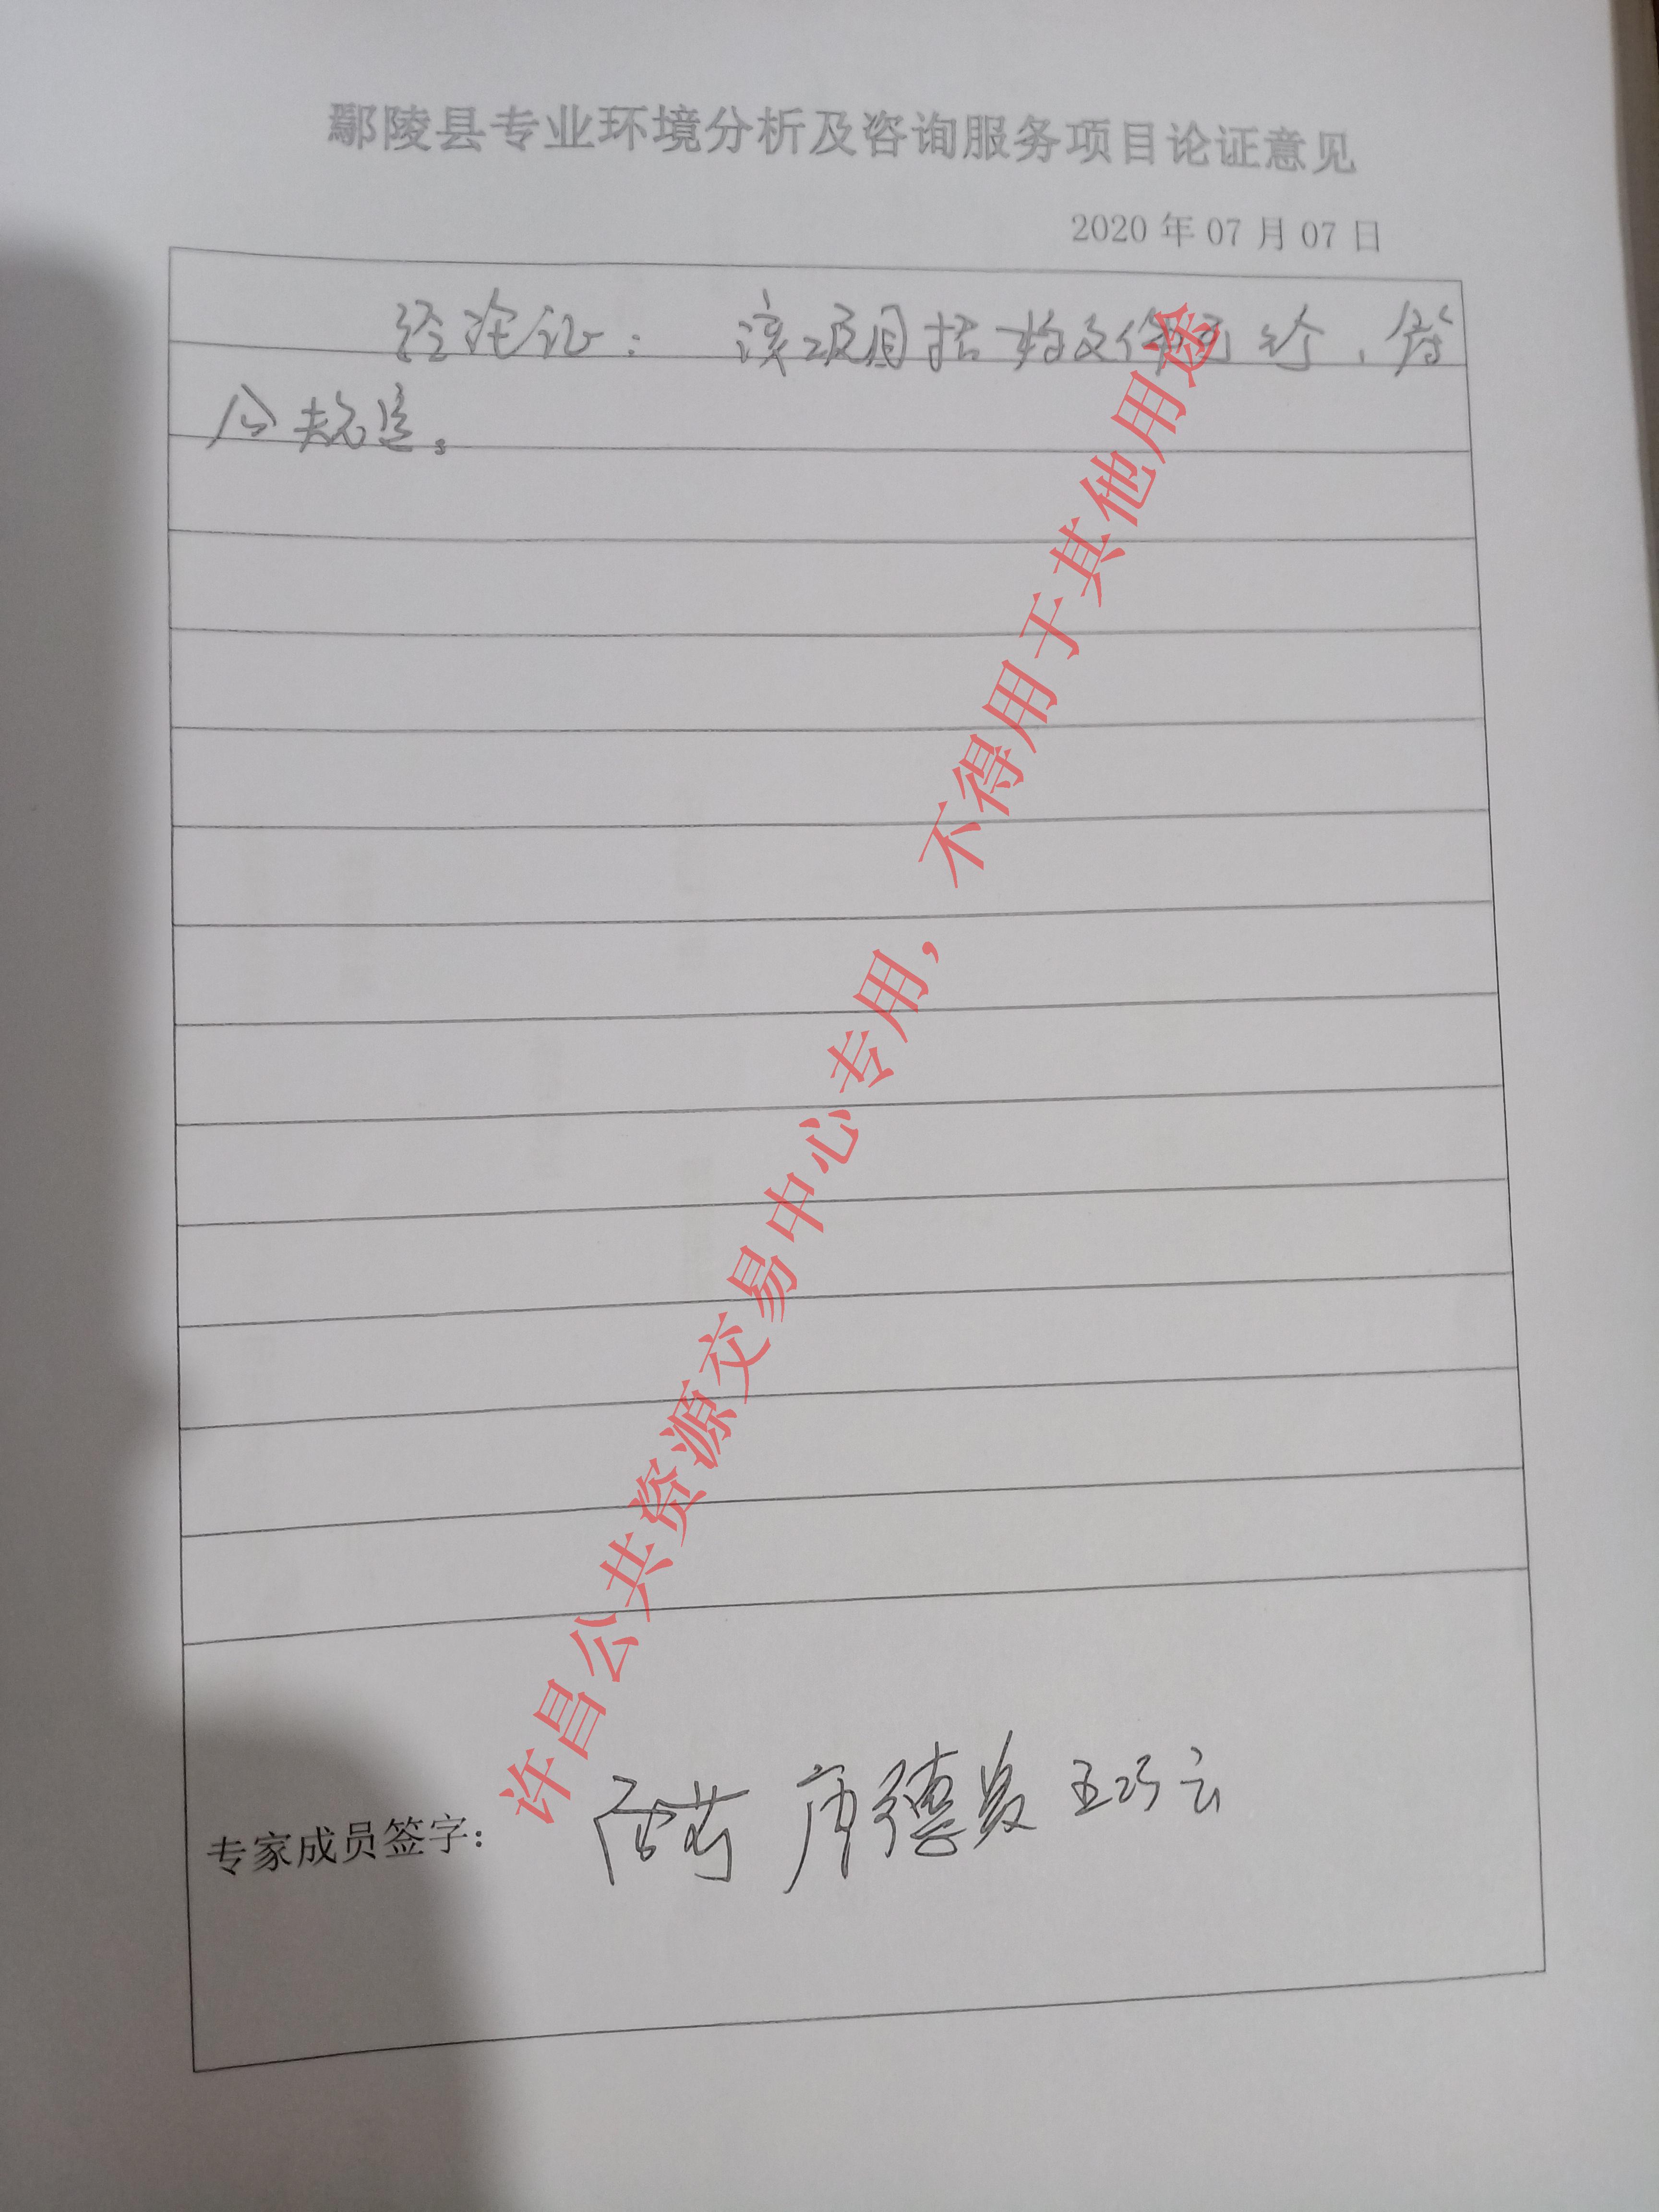 鄢陵县专业环境分析及咨询服务项目论证意见
2020 年 07 月 07 日
经论证： 该项目招标文件可行，符
合规定。
许昌公共资源交易中心专用，不得用于其他用途
专家成员签字： 唐德 王巧云